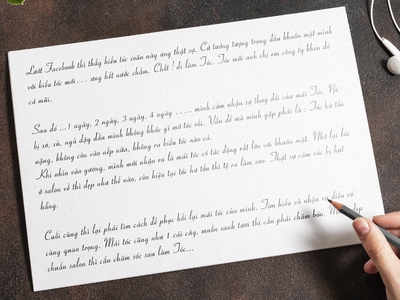 Lướt Facebook thì thấy kiểu tóc xoăn này ưng thật sự. Cứ tưởng tượng trong đầu khuôn mặt mình
với kiểu tóc mới . . . ưng hết nước chấm. Chốt ! đi làm Tóc. Tóc mới anh chị em công ty khen đỏ
cả mái.
Sau đó ...1 ngày, 2 ngày, 3 ngày, 4 ngày ....... mình cảm nhận sự thay đổi của mái Tóc. Nó
bị xơ, rủ, ngủ dậy đầu mình không khác gì mớ tóc rối. Vấn đề mà mình gặp phải là : Tóc hư tổn
nặng, không còn vào nếp nữa, không ra kiểu tóc nào cả.
Khi nhìn vào gương, mình mới nhận ra là mái tóc có tác động rất lớn với khuôn mặt. Nhớ lại lúc
ở salon về thì đẹp như thế nào, còn hiện tại tóc hư tổn thì tệ ra làm sao. Thật sự cảm xúc bị hụt
hẫng.
Cuối cùng thì lại phải tìm cách để phục hồi lại mái tóc của mình. Tìm kiếm và nhận ra điều vô
cùng quan trọng. Mái tóc cũng như 1 cái cây, muốn xanh tươi thì cần phải chăm bón. đẹp
chuẩn salon thì cần chăm sóc sau làm Tóc...